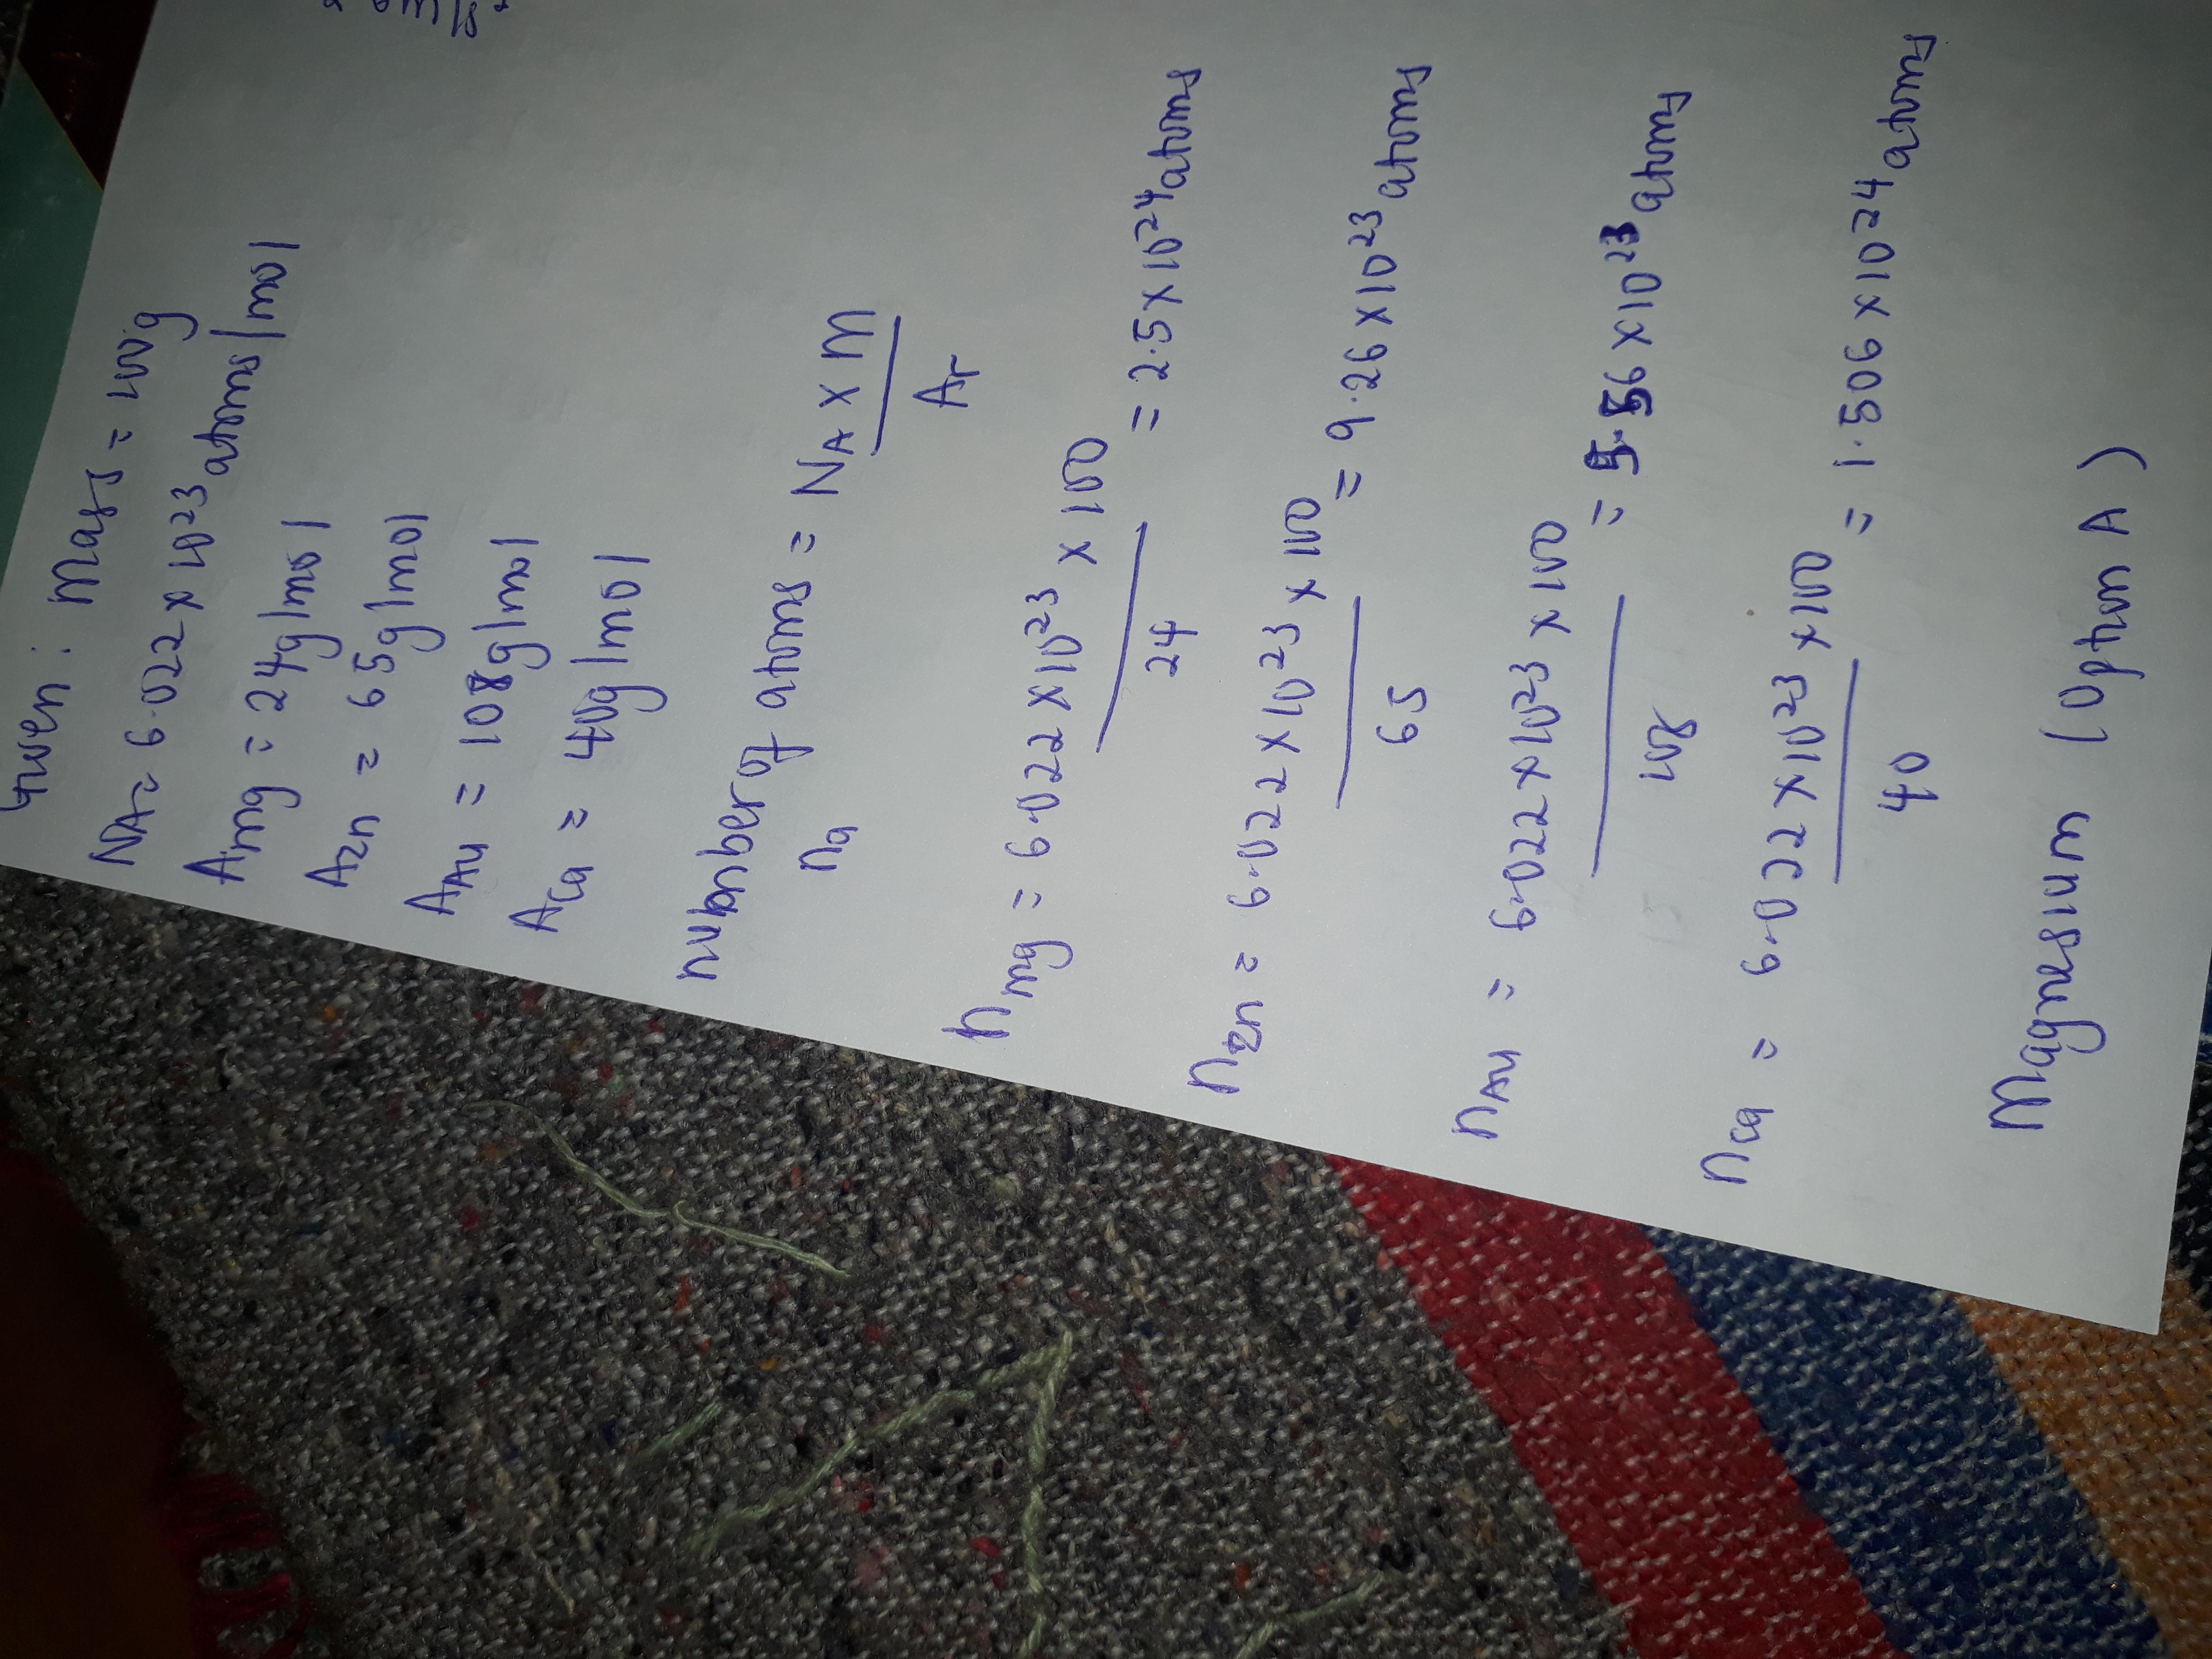 Given: Mass = 100g
NA = 6.022 x 10²³ atoms/mol
Amg = 24g/mol
Azn = 65g/mol
AAu = 108g/mol
Aca = 40g/mol
number of atoms = NA x m / Ar
na
nmg = 6.022 x 10²³ x 100 / 24 = 2.5 x 10²⁴ atoms
nzn = 6.022 x 10²³ x 100 / 65 = 9.26 x 10²³ atoms
nAu = 6.022 x 10²³ x 100 / 108 = 5.56 x 10²³ atoms
nca = 6.022 x 10²³ x 100 / 40 = 1.506 x 10²⁴ atoms
Magnesium (Option A)